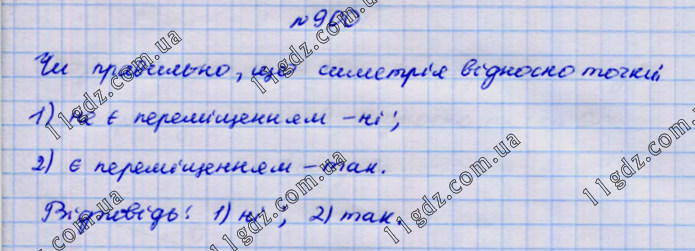 №960
Чи правильно, що симетрія відносно точки
1) не є переміщенням – ні;
2) є переміщенням – так.
Відповідь: 1) ні; 2) так.
11gdz.com.ua
11gdz.com.ua
11gdz.com.ua
11gdz.com.ua
11gdz.com.ua
11gdz.com.ua